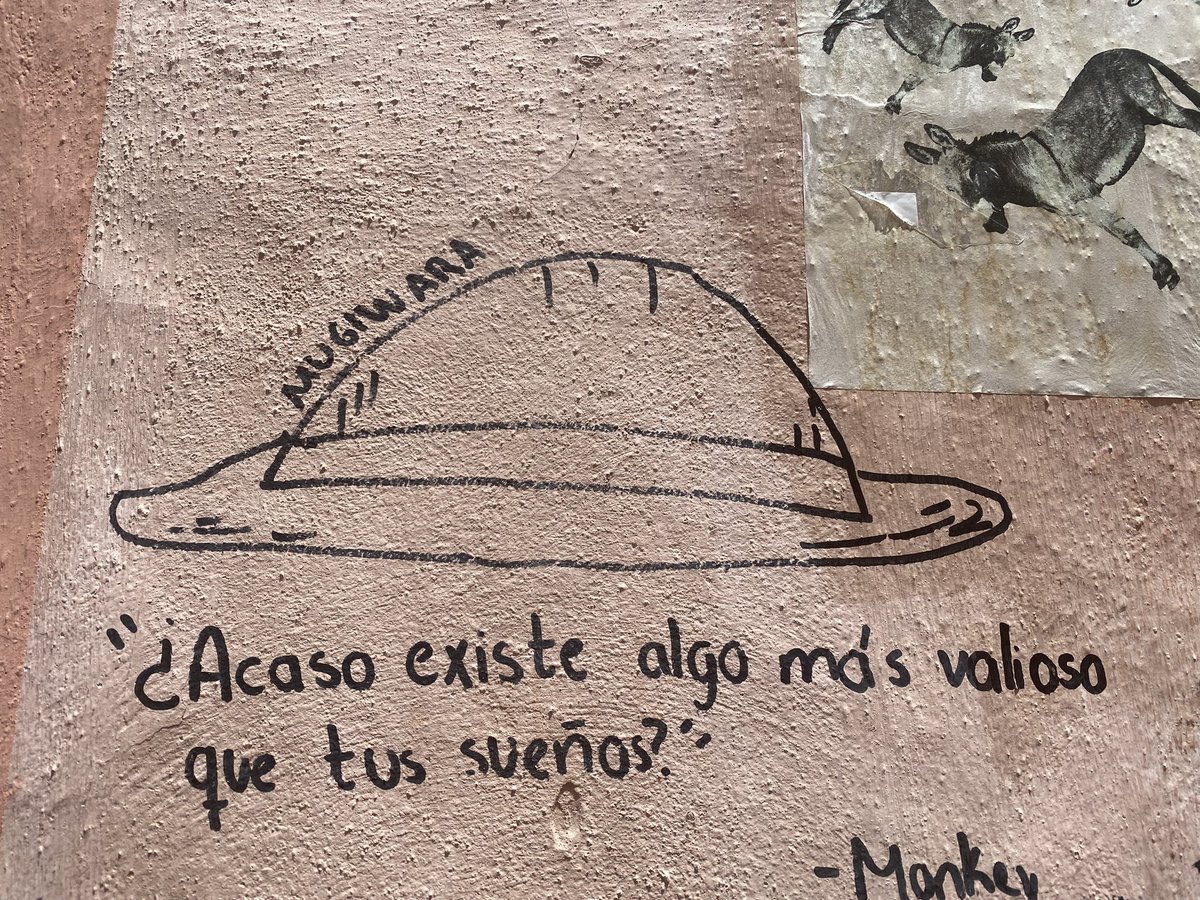 MUGIWARA
"¿Acaso existe algo más valioso
que tus sueños?"
-Monkey